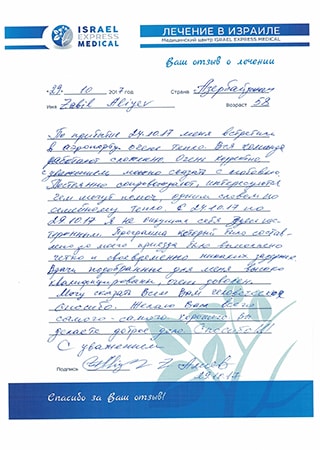 ISRAEL
EXPRESS
MEDICAL
ЛЕЧЕНИЕ В ИЗРАИЛЕ
Медицинский центр ISRAEL EXPRESS MEDICAL
Ваш отзыв о лечении
29. 10 2017 год Страна Азербайджан
Имя Zabil Aliyev Возраст 58
По прибытие 24.10.17 меня встретили
в аэропорту очень тепло. Вся команда
работают слаженно. Очень корректно
уважением можно сказать с любовью.
Постоянно сопровождают, интересуются
чем могут помоч, одним словом по
семейному тепло. С 24.10.17 по
29.10.17 я не ощущал себя
Программа который было состав-
лено до моего приезда был выполнено
четко и своевременно никаких задержек
Врачи подобранные для меня высоко
квалифицированы, очень доволен.
Могу сказать Всем Вам человеческое
спасибо. Желаю Вам всего
самого - самого хорошего Вы
делаете доброе дело Спасибо!!!
С уважением
Подпись З. Алиев
29.10.17
Спасибо за Ваш отзыв!